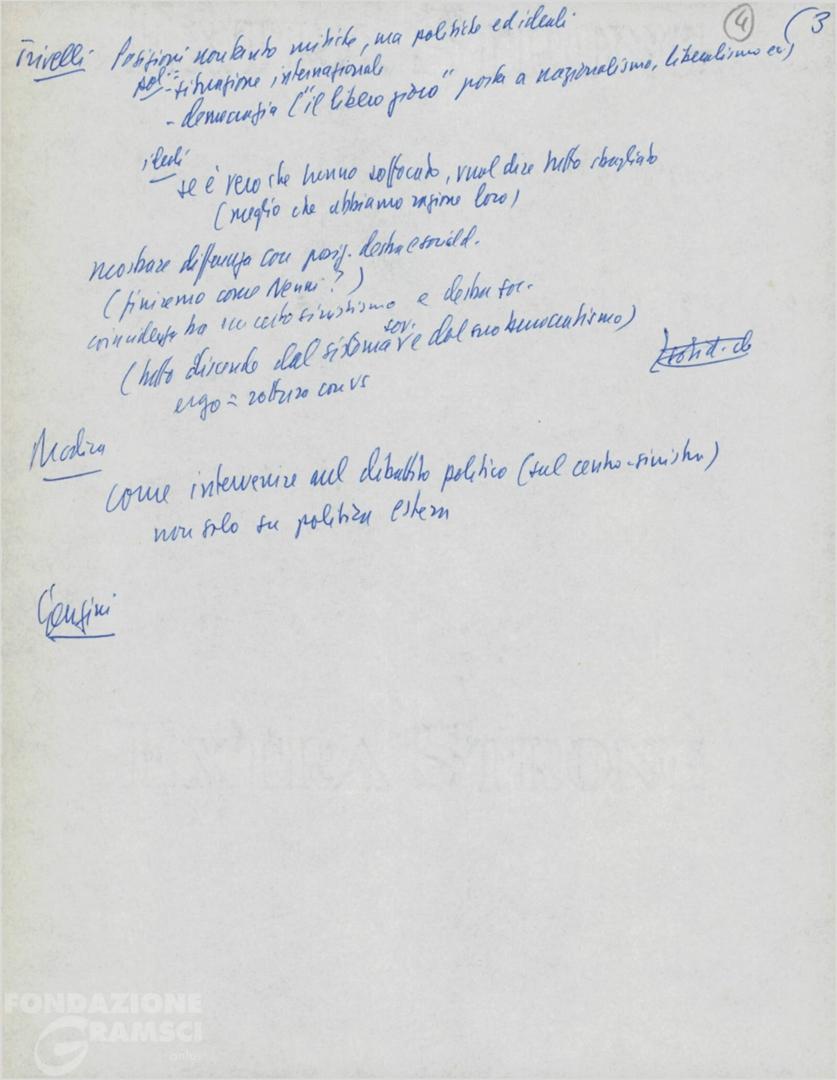 4 (3
Trivelli Posizioni non tanto mitiche, ma politiche ed ideali
pol:- situazione internazionale
- democrazia ("il libero gioco" porta a nazionalismo, liberalismo ecc)
ideali
se è vero che hanno soffocato, vuol dire tutto sbagliato
(meglio che abbiamo ragione loro)
mostrare differenza con posiz. destra e sociald.
(finiremo come Nenni?)
coincidenza tra un certo sinistrismo e destra soc.
(tutto discende dal sistema sov. e dal suo burocratismo)
ergo = rottura con US
Modica
come intervenire nel dibattito politico (sul centro-sinistra)
non solo su politica estera
Gensini
FONDAZIONE
GRAMSCI
onlus